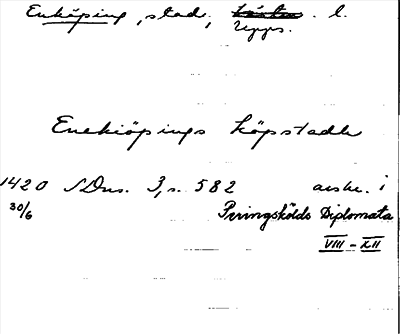 Enköping, stad, l.
Upps.
Enekiöpings köpstadh
1420 SDns. 3, s. 582 avskr. i
30/6 Peringskölds Diplomata
VIII - XII